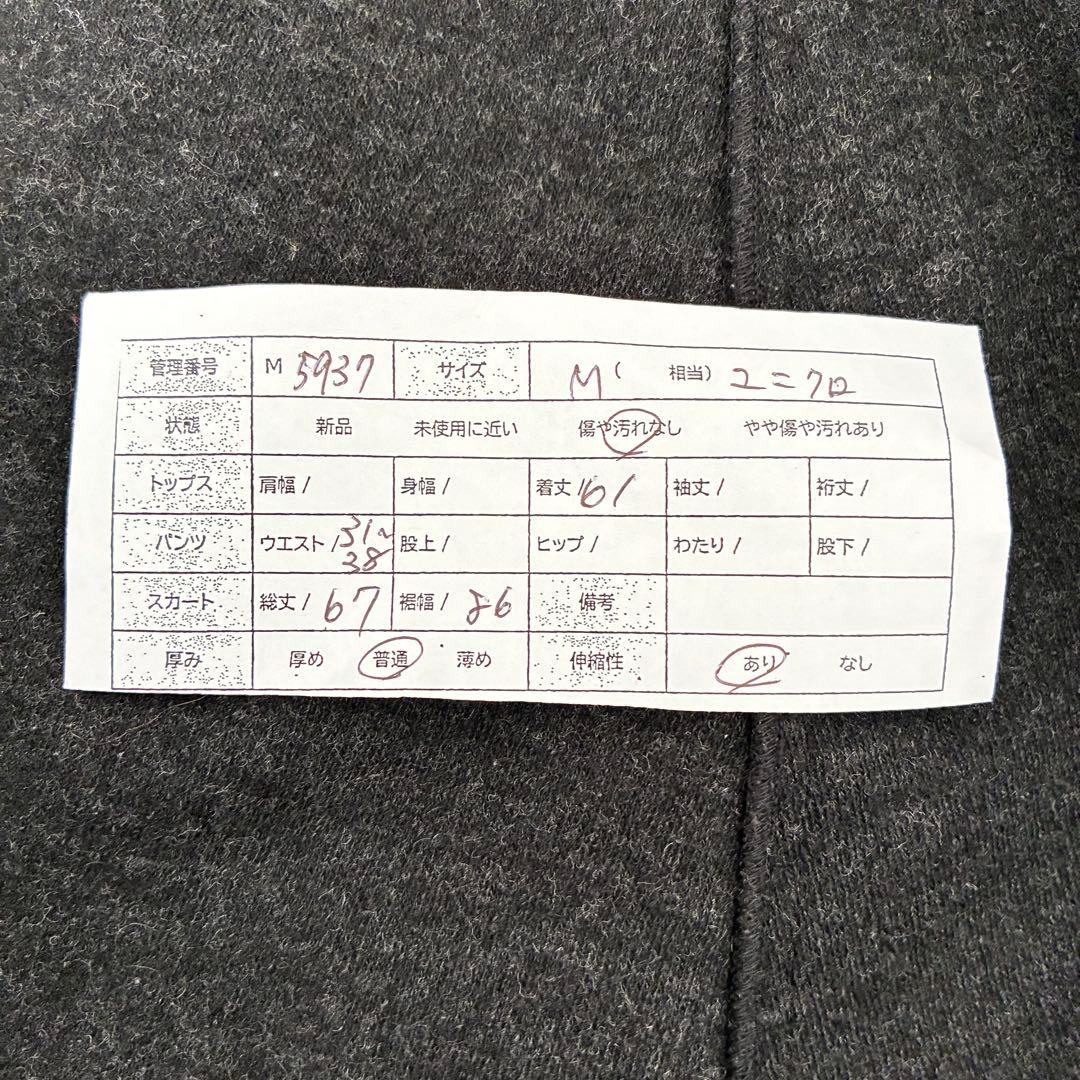 管理番号 M 5937 サイズ M ( 相当) ユニクロ
状態 新品 未使用に近い 傷や汚れなし やや傷や汚れあり
トップス 肩幅 / 身幅 / 着丈 / 61 袖丈 / 裄丈 /
パンツ ウエスト / 31~38 股上 / ヒップ / わたり / 股下 /
スカート 総丈 / 67 裾幅 / 備考
厚み 厚め 普通 薄め 伸縮性 あり なし